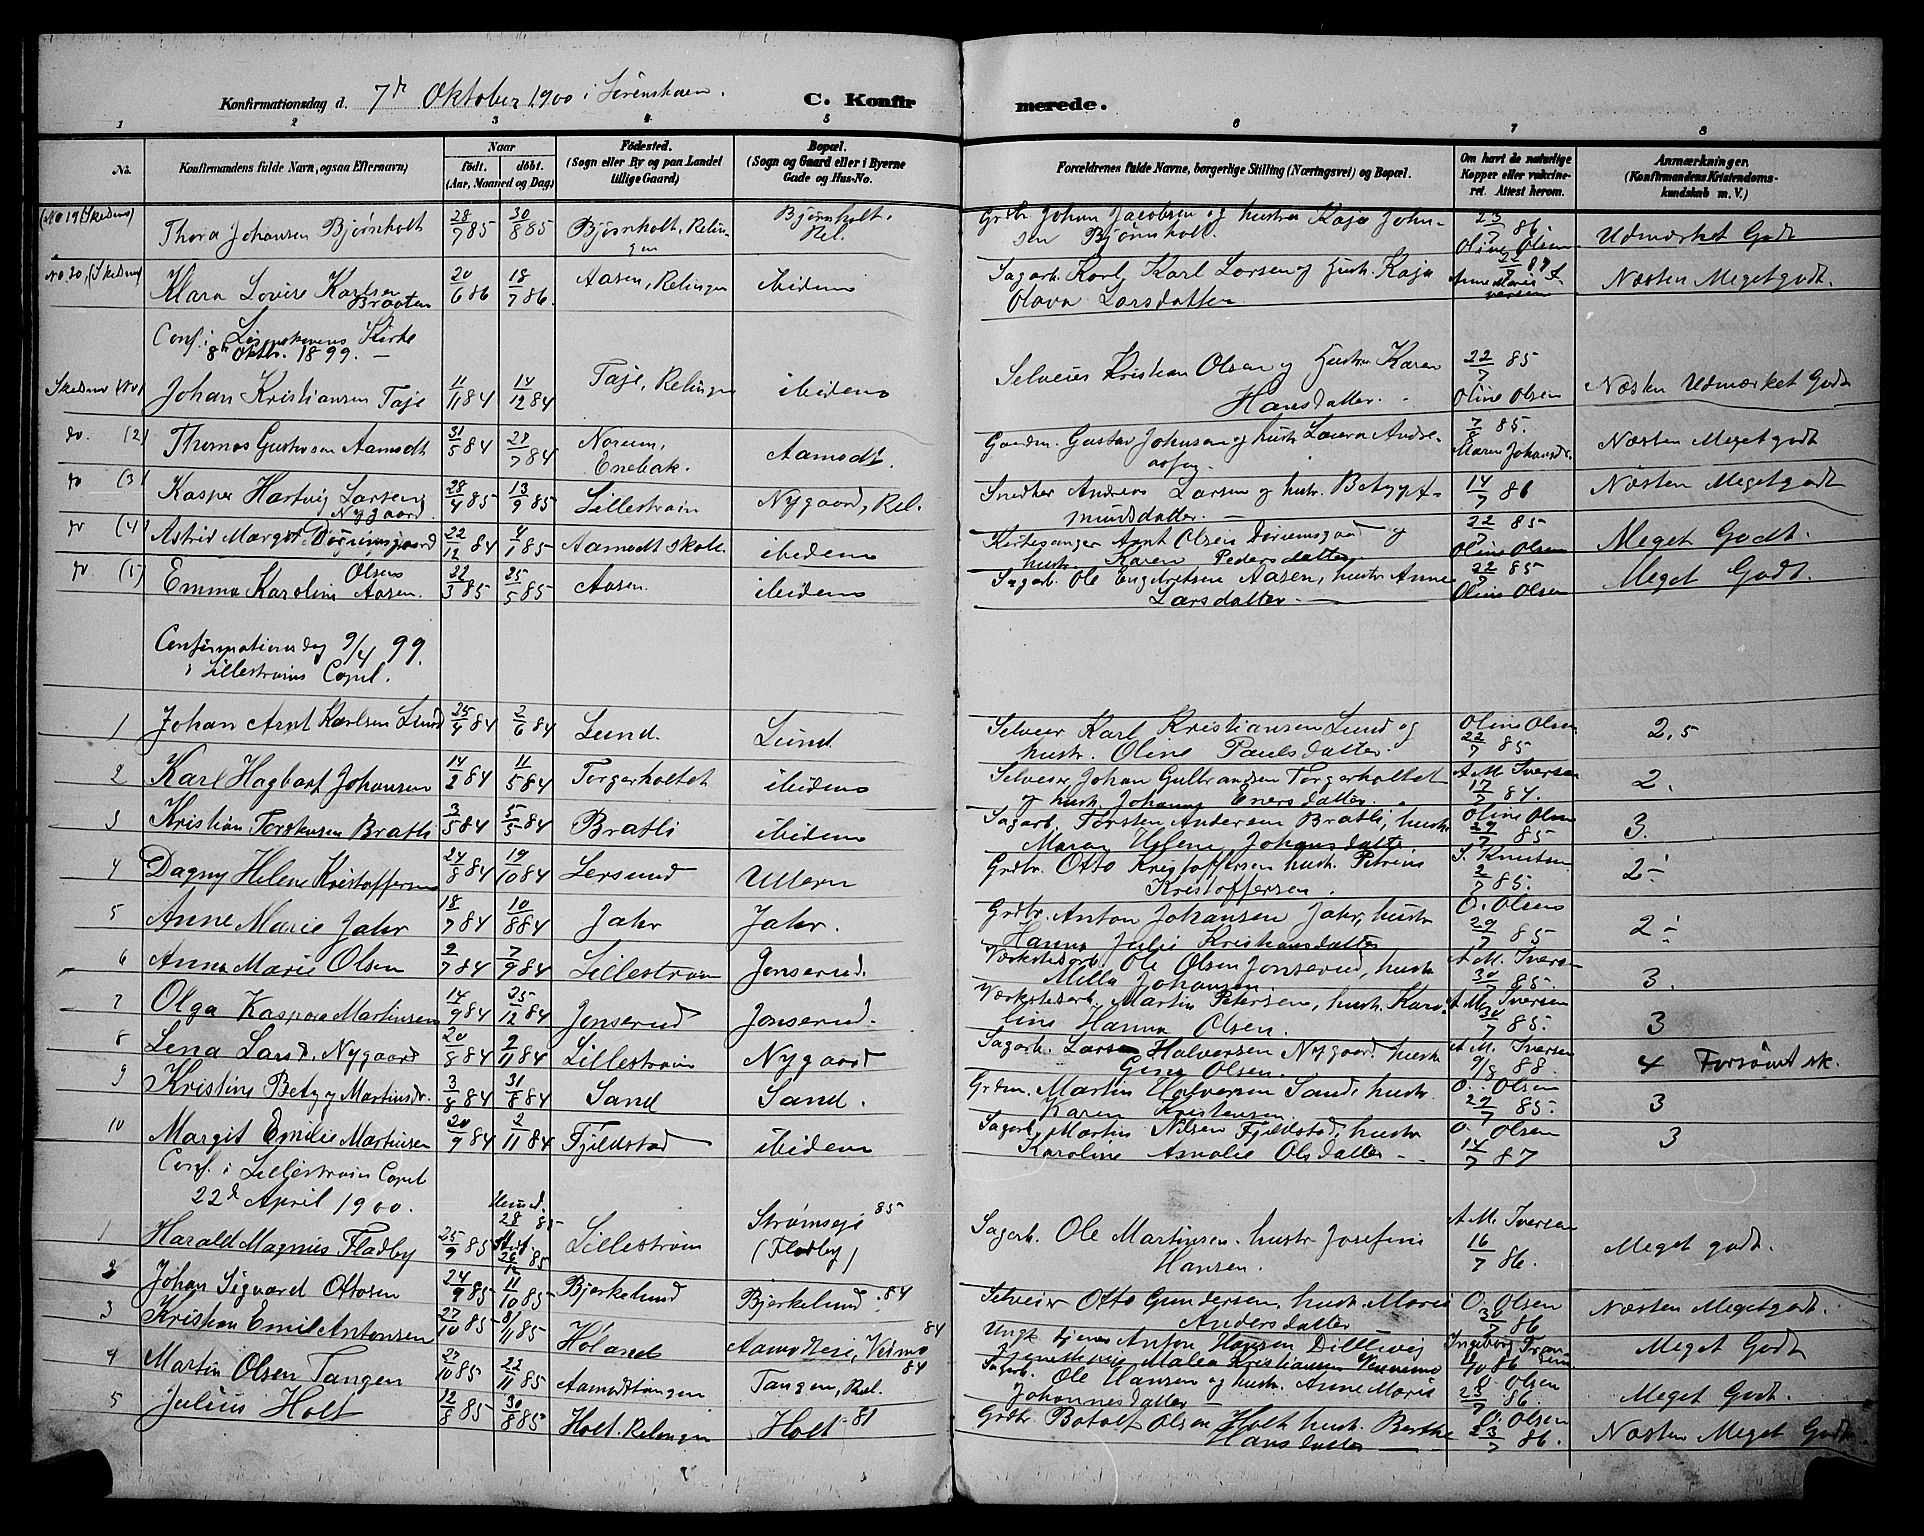 Konfirmationsdag d. 7de Oktober 1900 i
C. Konfirmerede.
1 2 3 4 5 6 7 8
No. Konfirmandens fulde Navn, ogsaa Efternavn) Naar født. døbt. (Aar, Maaned og Dag) Fødested. (Sogn eller By og paa Landet tillige Gaard) Bopæl. (Sogn og Gaard eller i Byerne Gade og Hus-No. Forældrenes fulde Navne, borgerlige Stilling (Næringsvei) og Bopæl. Om havt de naturlige Kopper eller vaccineret. Attest herom. Anmærkninger. (Konfirmandens Kristendomskundskab m. V.)
(No 19 (Skedsmo) Thora Johansen Bjørnholt 28/7 85 30/8 85 Bjørnholt, Relingen Bjørnholt. Rel. Grdbr Johan Jacobsen og hustru Kaja Johnsen Bjørnholt. 23/7 86 Oline Olsen Udmærket Godt
No. 20, (Skedsmo) Klara Lovise Karlsen Braaten 20/6 86 18/7 86. Aasen, Relingen ibidem Sagarb. Karl Karl Larsen og Hustr. Kaja Olava Larsdatter 22/7 87 Anne Marie Iversen Næsten Megetgodt.
Conf. i Kirke
8de Oktbr. 1899. —
Skedsmo Johan Kristiansen Taje 11/11 84 14/12 84 Taje, Relingen ibidem Selveier Kristian Olsen og Hustru Karen Hansdatter. 22/7 85 Oline Olsen Næsten Udmærket Godt
do. (2) Thomas Gustavsen Aamodt 31/5 84 27/7 84 Norum, Enebak. Aamodt. Gaardm. Gustav Johnsen og hustr. Laura 7/8 85. Maren Johansdr. Næsten Megetgodt
do (3) Kasper Hartvig Larsen Nygaard. 28/4 85 13/9 85 Lillestrøm Nygaard, Rel. Snedker Andreas Larsen og hustr. Betzy Amundsdatter. — 14/7 86 Næsten Megetgodt
do (4) Astrid Margot Dørumsgaard 22/12 84 4/1 85 Aamodt skole. ibidem Kirkesanger Arnt Olsen Dørumsgaard og hustr. Karen Pedersdatter 22/7 85 Oline Olsen Meget Godt.
do (5) Emma Karoline Olsen Aasen. 22/3 85 25/5 85 Aasen. ibidem Sagarb. Ole Engebretsen Aasen, hustr. Anne Larsdatter. — 22/7 85 Oline Olsen Meget Godt.
Confirmationsdag 9/4 99.
i Lillestrøms Capel.
1 Johan Arnt Karlsen Lund 25/4 84 2/6 84 Lund. Lund Selveier Karl Kristiansen Lund og hustr. Oline Paulsdatter. Oline Olsen 22/7 85 2,5
2 Karl Hagbart Johansen 14/2 84 11/5 84 Torgerholtet ibidem Selveier Johan Gulbrandsen Torgerholtet og hustr. Johanne Enersdatter. A. M. Iversen 17/7 84. 2.
3 Kristian Torstensen Bratli 3/5 84 5/5 84 Bratli ibidem Sagarb. Torsten Andersen Bratli, hustr. Maren Helene Johansdatter Oline Olsen 29/7 85 3.
4 Dagny Helene Kristoffersen 24/8 84 19/10 84 Lersund Ullern Grdbr. Otto Kristoffersen hustr. Petrine Kristoffersen. S. Knutsen 2/7 85. 2÷
5 Anne Marie Jahr 18/7 84 10/8 84 Jahr Jahr. Grdbr. Anton Johansen Jahr, hustr Hanna Julie Kristiansdatter O. Olsen 29/7 85 2÷
6 Anna Marie Olsen 2/7 84 7/9 84 Lillestrøm Jonserud. Værkstedsarb. Ole Olsen Jonserud, hustr Milla Johansen. A. M. Iversen 30/7 85. 3.
7 Olga Kaspara Martinsen 14/9 84 25/12 84 Jonserud Jonserud. Værkstedsarb. Martin Petersen, hustr. Karoline Hanna Olsen. A. M. Iversen 30/7 85. 3
8 Lena Larsd. Nygaard 20/8 84 2/11 84 Lillestrøm Nygaard Sagarb. Larsen Halversen Nygaard, hustr Gina Olsen. A. M. Iversen 9/8 88. 4 Forsømt sk.
9 Kristine Betzy Martinsdr. 3/8 84 31/8 84 Sand Sand. Grdm. Martin Halversen Sand, hustr. Karen Kristensen O. Olsen 29/7 85. 3
10 Margit Emilie Martinsen 20/9 84 2/11 84 Fjeldstad ibidem Sagarb. Martin Nilsen Fjeldstad, hustr Karoline Amalie Olsdatter. — O. Olsen 14/7 87 3
Conf. i Lillestrøm Capel
22de April 1900.
1 Harald Magnus Fladby 25/9 85 28 85 26/12 85 Lillestrøm Strømseje 85 (Fladby) Sagarb. Ole Martinsen. hustr Josefine Hansen. A. M. Iversen 16/7 86. Meget godt.
2 Johan Sigvard Ottosen 24/9 85 11/10 85 Bjerkelund Bjerkelund. 84 Selveier Otto Gundersen. hustr. Marie Andersdatter — O. Olsen 30/7 86 Næsten Megetgodt.
3 Kristian Emil Antonsen 27/10 85 8/11 85 Høland 84 Ungk. tjener Anton Hansen Dillevig Malea Kristiansen Ingeborg 86 Meget Godt
4 Martin Olsen Tangen 27/10 85 22/11 85 Aamodttangen Tangen, Rel. 84 Sagarb. Ole Hansen og hustr. Anne Marie Johannesdatter — O. Olsen 23/7 86. Meget Godt.
5 Julius Holt 12/8 85 30/8 85 Holt. Relingen Holt 81 Grdbr. Botolf Olsen Holt hustr. Berthe Hansdatter — O. Olsen 23/7 86. Næsten Meget Godt.